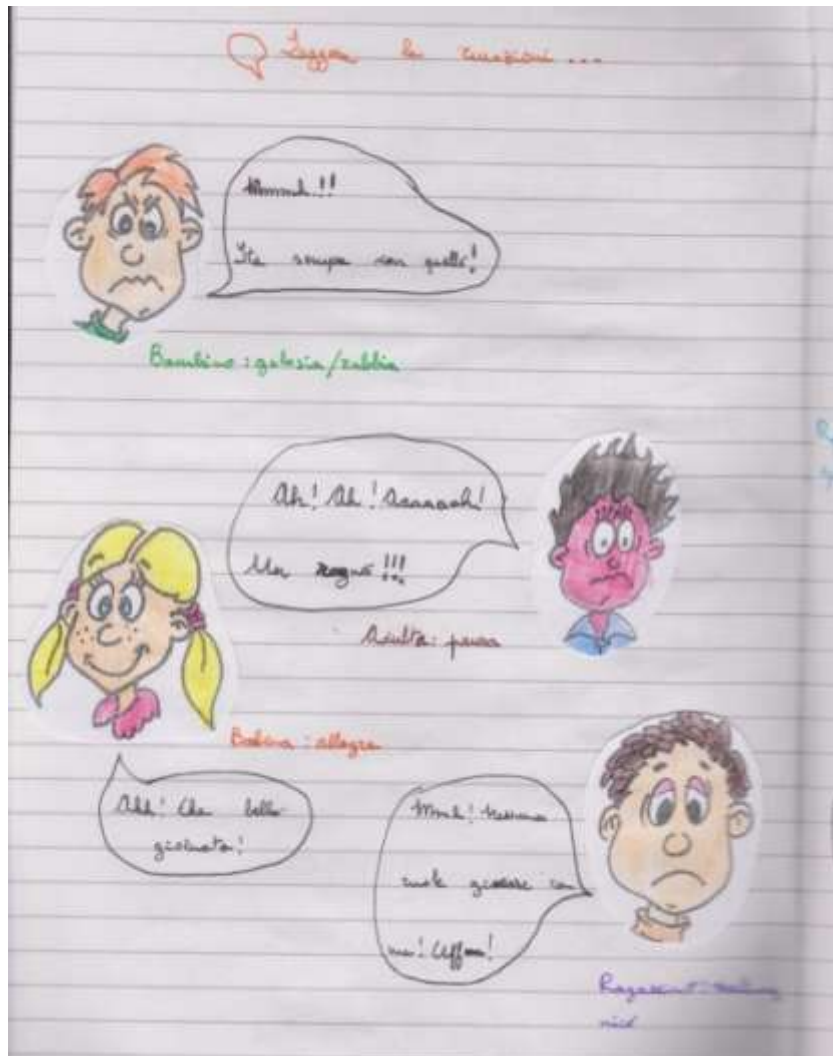 Leggere le emozioni ...
Mmmmh!!
Sta sempre con quello!
Bambino: gelosia/rabbia
Ah! Ah! Aaaaaah!
Un ragno!!!
Adulto: paura
Bambina: allegra
Ahh! Che bella
giornata!
Mmmh! Nessuno
vuole giocare con
me! Uffaa!
Ragazzino: